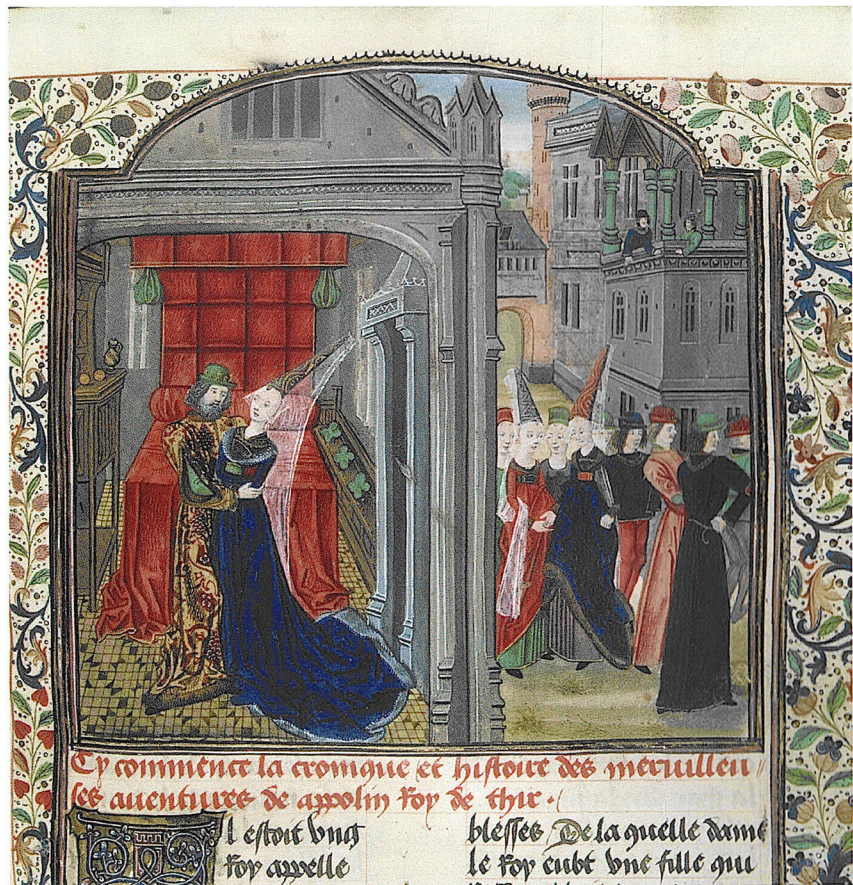 Cy commence la cronique et histoire des merueilleu
ses auentures de appolin Roy de thir.
Il estoit vng
Roy appelle
blesses. De la quelle dame
le Roy eubt vne fille qui